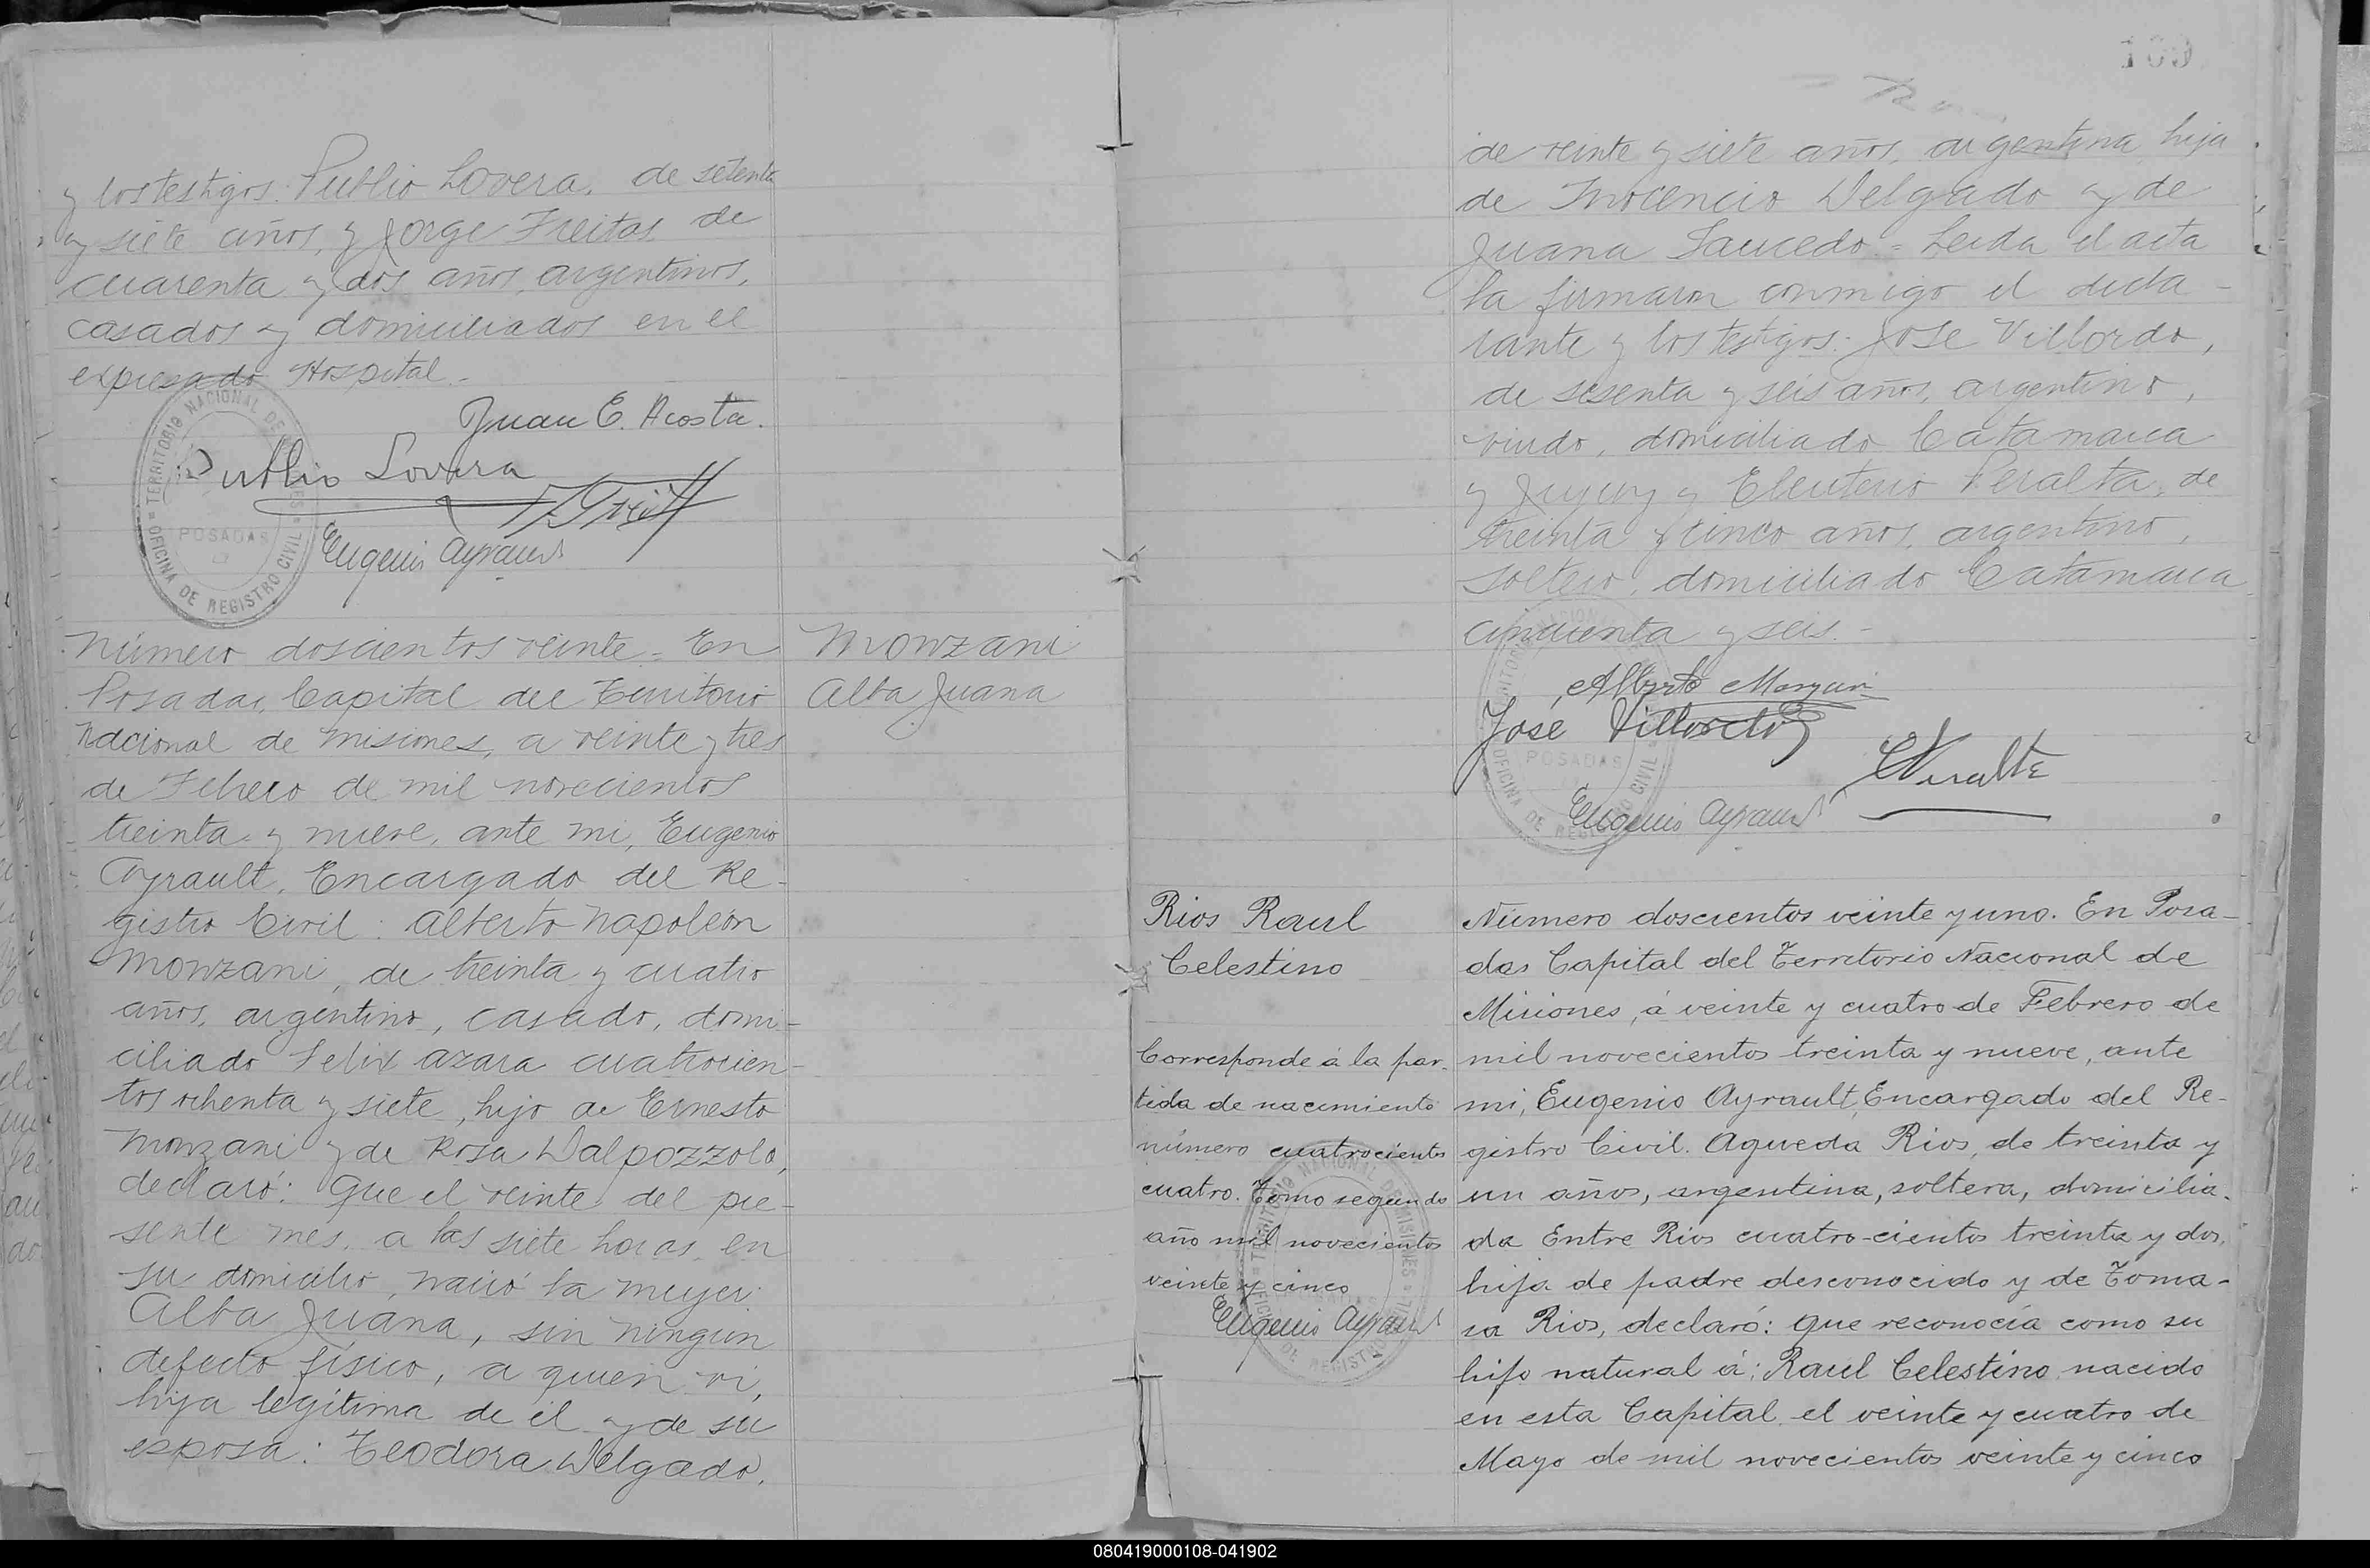 y los testigos: Publio Lovera, de setenta
y siete años, y Jorge Freitas de
cuarenta y dos años, argentinos,
casados y domiciliados en el
expresado Hospital.-
Juan E. Acosta.
Publio Lovera
Eugenio Ayrault
TERRITORIO NACIONAL DE MISIONES
POSADAS
OFICINA DE REGISTRO CIVIL
Número doscientos veinte = En
Posadas, Capital del Territorio
Nacional de Misiones, a veinte y tres
de Febrero de mil novecientos
treinta y nueve, ante mi, Eugenio
Ayrault, Encargado del Re-
gistro Civil: Alberto Napoleón
Monzani, de treinta y cuatro
años, argentino, casado, domi-
ciliado Felix Azara cuatrocien-
tos ochenta y siete, hijo de Ernesto
Monzani y de Rosa Dalpozzolo,
declaró: Que el veinte del pre-
sente mes, a las siete horas en
su domicilio, nació la mujer:
Alba Juana, sin ningun
defecto físico, a quien ví,
hija legítima de él y de su
esposa: Teodora Delgado,
Monzani
Alba Juana
169
de veinte y siete años, argentina hija
de Inocencio Delgado y de
Juana Saucedo = Leida el acta
la firmaron conmigo el decla-
rante y los testigos: José Villordo,
de sesenta y seis años, argentino,
viudo, domiciliado Catamarca
y Jujuy y Eleuterio Peralta, de
treinta y cinco años, argentino,
soltero, domiciliado Catamarca
cincuenta y seis.-
Alberto Monzani
José Villordo
EPeralta
Eugenio Ayrault
POSADAS
OFICINA DE REGISTRO CIVIL
Rios Raul
Celestino
Corresponde á la par-
tida de nacimiento
número cuatrocientos
cuatro. Tomo segundo
año mil novecientos
veinte y cinco
Eugenio Ayrault
TERRITORIO NACIONAL DE MISIONES
OFICINA DE REGISTRO CIVIL
Número doscientos veinte y uno. En Posa-
das Capital del Territorio Nacional de
Misiones, á veinte y cuatro de Febrero de
mil novecientos treinta y nueve, ante
mi, Eugenio Ayrault, Encargado del Re-
gistro Civil. Agueda Rios, de treinta y
un años, argentina, soltera, domicilia-
da Entre Rios cuatro-cientos treinta y dos,
hija de padre desconocido y de Toma-
sa Rios, declaró: que reconocía como su
hijo natural á: Raul Celestino nacido
en esta Capital el veinte y cuatro de
Mayo de mil novecientos veinte y cinco
080419000108-041902